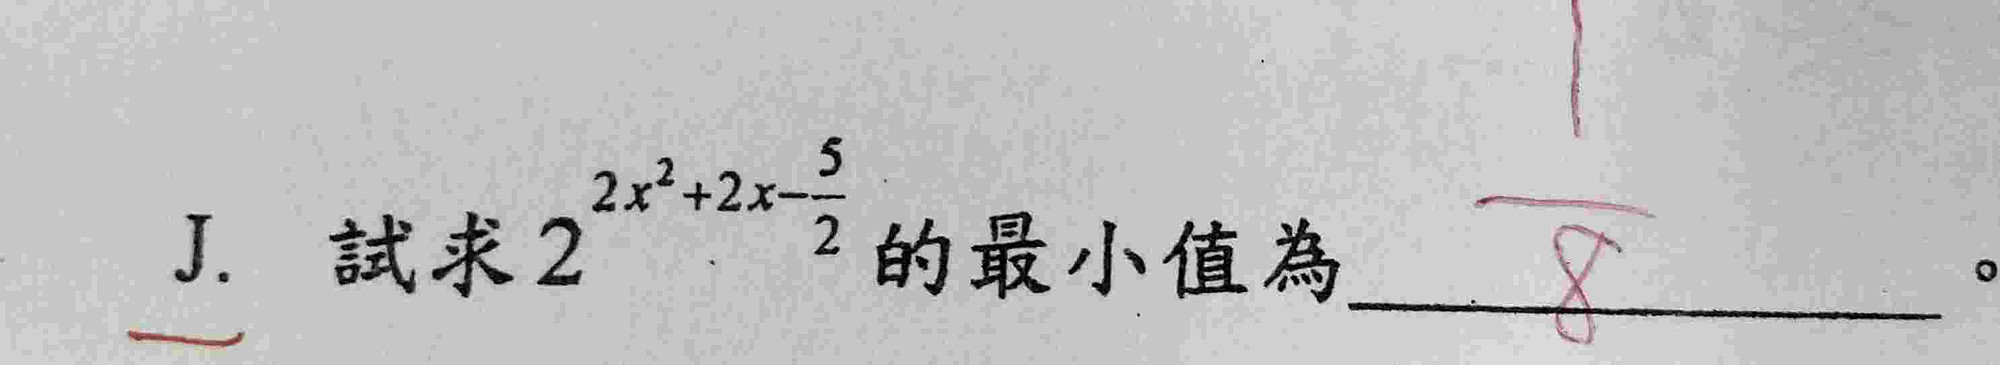 J. 試求 2^{2x^2+2x-\frac{5}{2}} 的最小值為 \frac{1}{8} 。